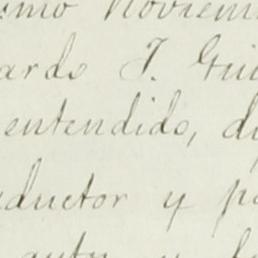 smo Noviem
ardo J. Gui
entendido, d
ductor y p